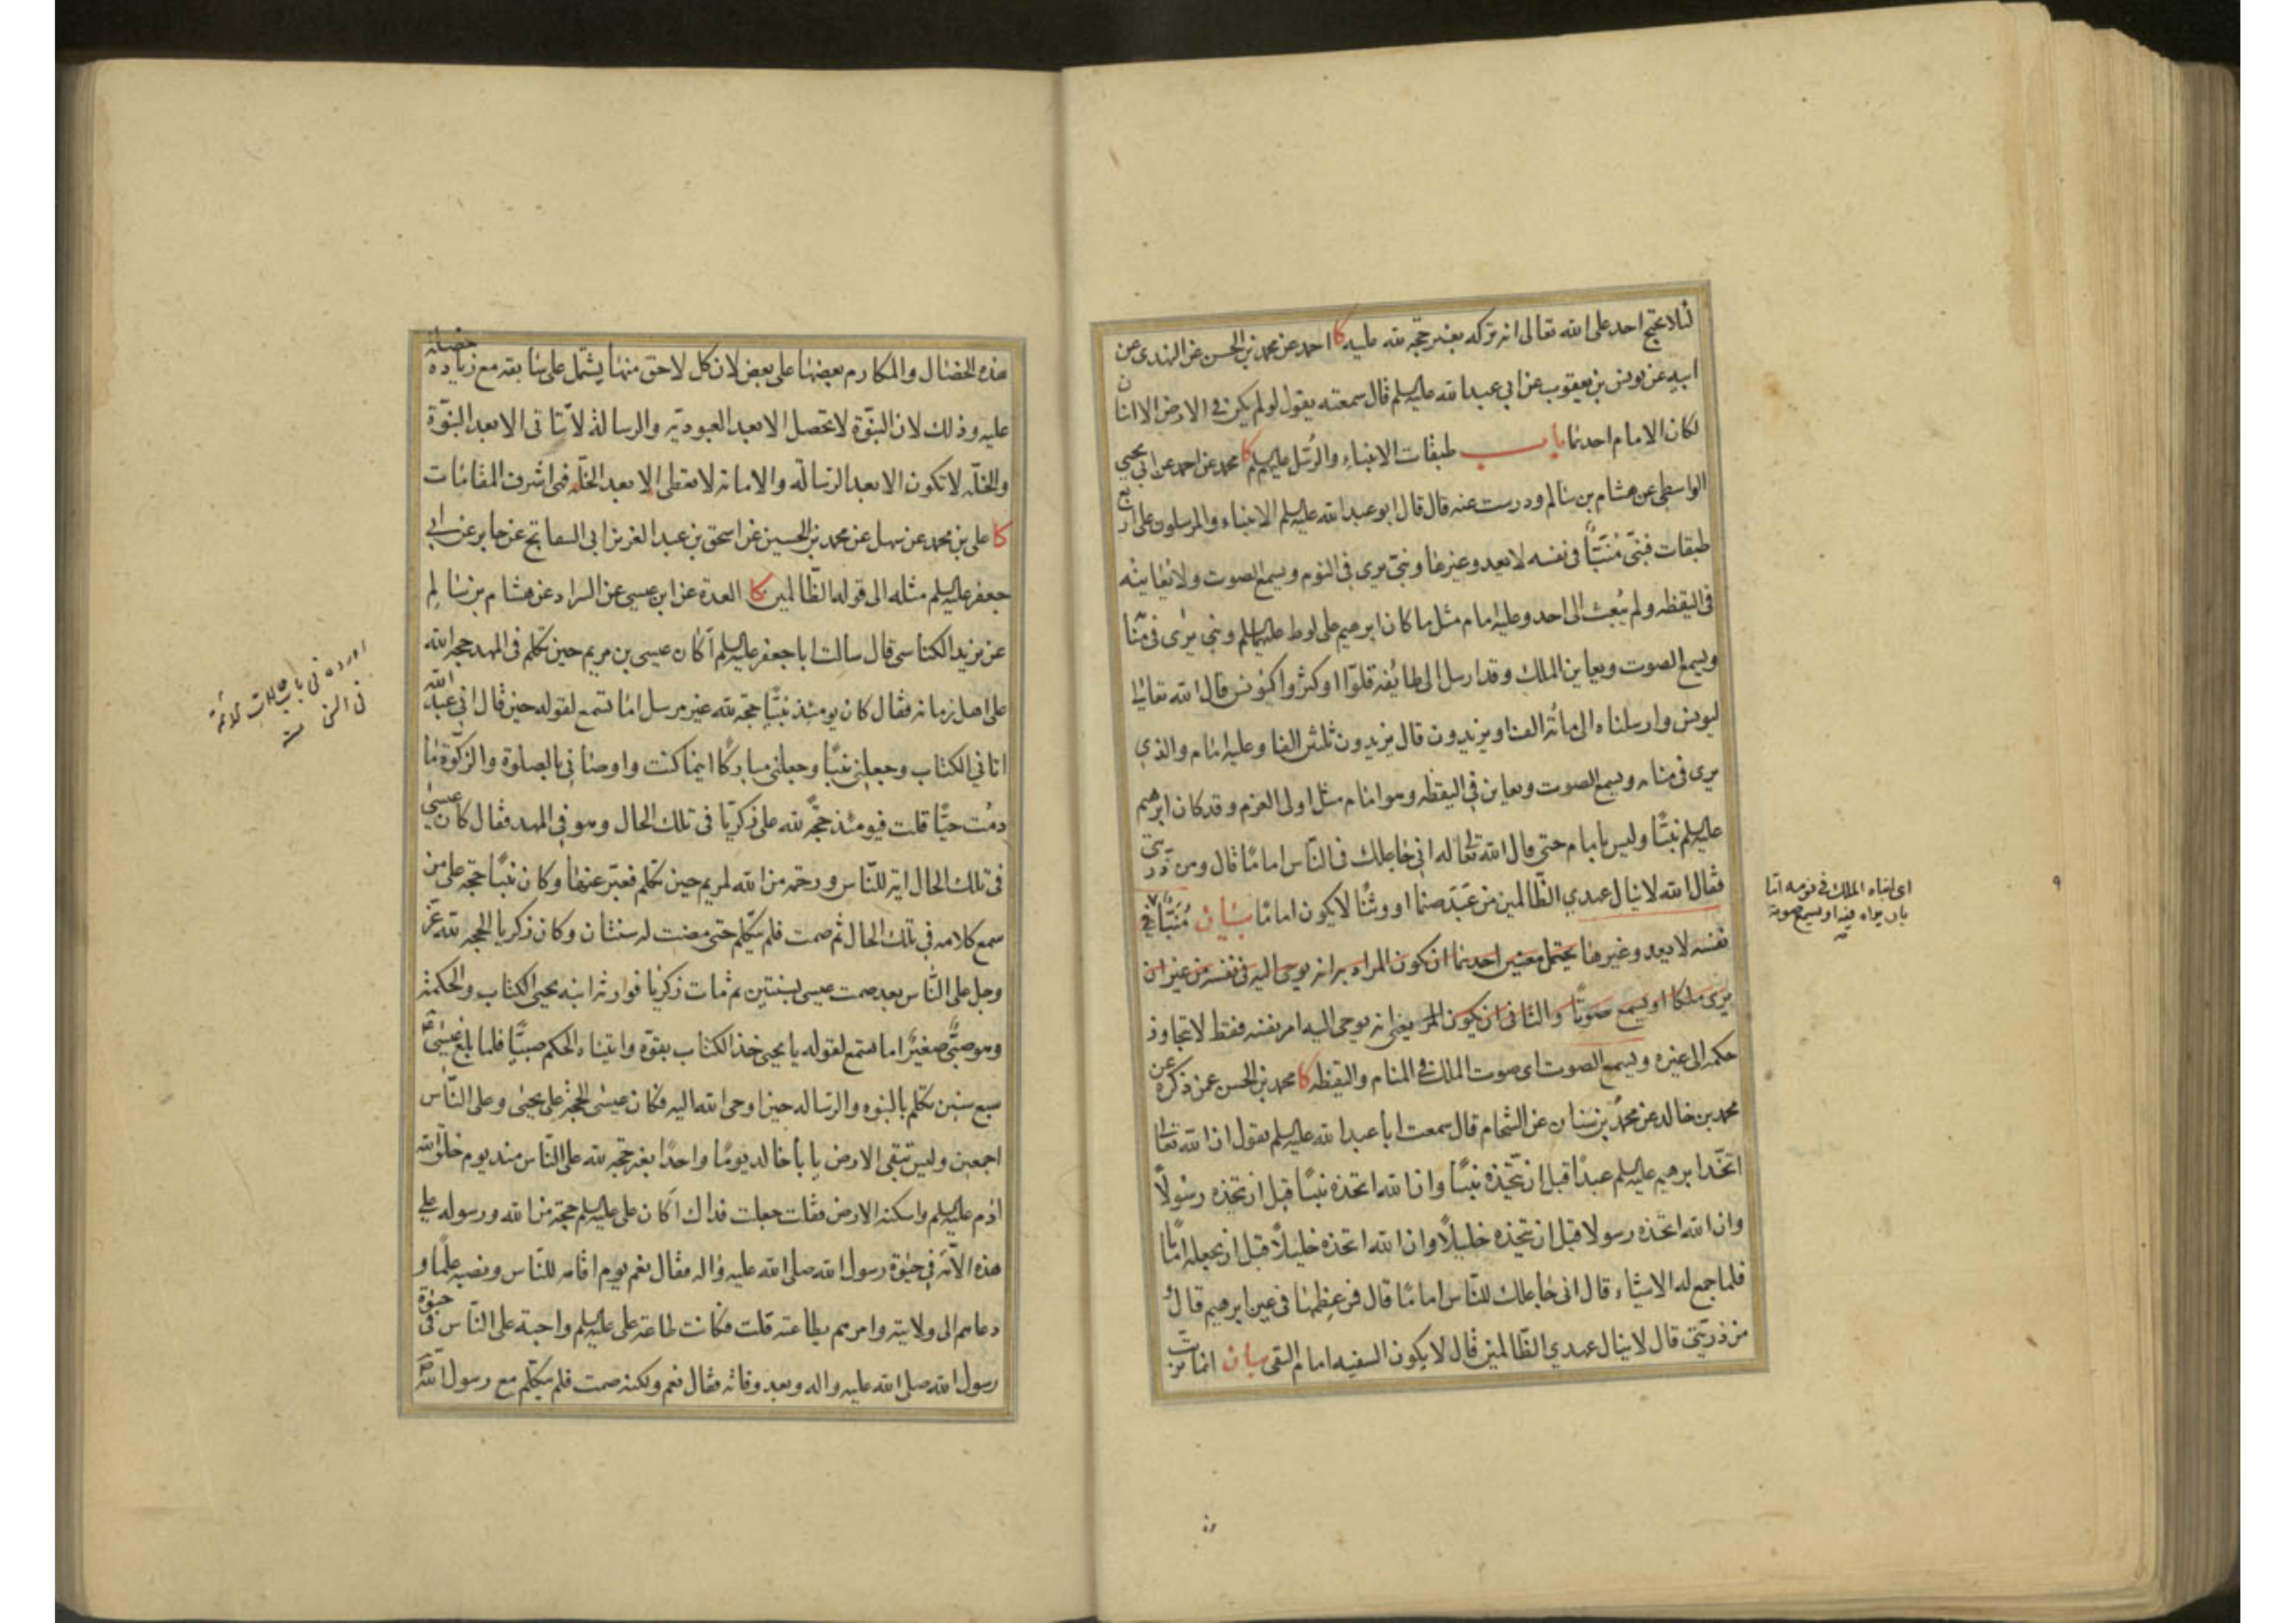 لئلا يحتج احد على الله تعالى انه تركه بغير حجة لله عليه كا احمد عن محمد بن الحسن عن النهدى عن
ابيه عن يونس بن يعقوب عن ابى عبد الله عليه السلم قال سمعته يقول لو لم يكن فى الارض الا اثنان
لكان الامام احدهما باب طبقات الانبياء والرسل عليهم السلم كا محمد عن احمد عن ابى يحيى
الواسطى عن هشام بن سالم ودرست عنه قال قال ابو عبد الله عليه السلم الانبياء والمرسلون على اربع
طبقات فنبىّ مُنَبَّأ فى نفسه لا يعدو غيرها ونبىّ يرى فى النوم ويسمع الصوت ولا يعاينه
فى اليقظه ولم يُبعث الى احد وعليه امام مثل ما كان ابرهيم على لوط عليهما السلم ونبى يرى فى منا
ويسمع الصوت ويعاين الملك وقد ارسل الى طائفه قلّوا او كثروا كيونس قال الله تعالى
ليونس وارسلناه الى مائة الف او يزيدون قال يزيدون ثلثين الفا وعليه امام والذى
يرى فى منامه ويسمع الصوت ويعاين فى اليقظه وهو امام مثل اولى العزم وقد كان ابرهيم
عليه السلم نبيًّا وليس بامام حتى قال الله تعالى له انى جاعلك فى الناس اماما قال ومن ذريتى
فقال الله لا ينال عهدي الظّالمين من عَبَدَ صنما او وثنًا لا يكون اماما بيان مُنَبَّأ فى
نفسه لا يعدو غيرها يحتمل معنيين احدهما ان يكون المراد به انه يوحى اليه فى نفسه من غير ان
يرى ملكا او يسمع صوتًا والثانى ان يكون المر يعنى انه يوحى اليه امر نفسه فقط لا يتجاوز
حكمه الى غيره ويسمع الصوت اى صوت الملك فى المنام واليقظه كا محمد بن الحسن عمن ذكره عن
محمد بن خالد عن محمد بن سنان عن الشحام قال سمعت ابا عبد الله عليه السلم يقول ان الله تعالى
اتخذ ابرهيم عليه السلم عبدًا قبل ان يتخذه نبيًّا وان الله اتخذه نبيًّا قبل ان يتخذه رسولًا
وان الله اتخذه رسولا قبل ان يتخذه خليلًا وان الله اتخذه خليلًا قبل ان يجعله امامًا
فلما جمع له الاشياء قال انى جاعلك للنّاس امامًا قال فمن عظمها فى عين ابرهيم قال و
من ذريّتى قال لا ينال عهدي الظّالمين قال لا يكون السفيه امام التقى بيان انما ترتب
اى انباه الملك فى نومه اما
بان يراه فيه او يسمع صوته
هذه الخصال والمكارم بعضها على بعض لان كل لاحق منها يشتمل على سابقه مع زياده خصلة
عليه وذلك لان النبوّة لا تحصل الا بعد العبوديّة والرسالة لا تتأتى الا بعد النبوّة
والخلّه لا تكون الا بعد الرسالة والامامة لا تعطى الا بعد الخلّه فهى اشرف المقامات
كا على بن محمد عن سهل عن محمد بن الحسين عن اسحق بن عبد العزيز ابى السفاتج عن جابر عن ابى
جعفر عليه السلم مثله الى قوله الظّالمين كا العدة عن ابن عيسى عن السراد عن هشام بن سالم
عن يزيد الكناسى قال سالت ابا جعفر عليه السلم أكان عيسى بن مريم حين تكلم فى المهد حجة الله
على اهل زمانه فقال كان يومئذ نبيًّا حجة لله غير مرسل اما تسمع لقوله حين قال انى عبد الله
اتانى الكتاب وجعلنى نبيًّا وجعلنى مباركًا اينما كنت واوصانى بالصلوة والزكوة ما
دمت حيًّا قلت فيومئذ حجّة لله على زكريا فى تلك الحال وهو فى المهد فقال كان عيسى
فى تلك الحال اية للنّاس ورحمة من الله لمريم حين تكلم فعبّر عنها وكان نبيًّا حجة على من
سمع كلامه فى تلك الحال ثم صمت فلم يتكلم حتى مضت له سنتان وكان زكريا الحجة لله عزّ
وجل على النّاس بعد صمت عيسى بسنتين ثم مات زكريا فورثه ابنه يحيى الكتاب والحكمة
وهو صبىّ صغير اما تسمع لقوله يا يحيى خذ الكتاب بقوة واتيناه الحكم صبيًّا فلما بلغ عيسى
سبع سنين تكلم بالنبوه والرساله حين اوحى الله اليه فكان عيسى الحجة على يحيى وعلى النّاس
اجمعين وليس تبقى الارض يا با خالد يومًا واحدًا بغير حجة لله على النّاس منذ يوم خلق الله
ادم عليه السلم واسكنه الارض فقلت جعلت فداك أكان على عليه السلم حجة من الله ورسوله على
هذه الامّة فى حيوة رسول الله صلى الله عليه واله فقال نعم يوم اقامه للنّاس ونصبه علمًا و
دعاهم الى ولايته وامرهم بطاعته قلت فكانت طاعة على عليه السلم واجبة على النّاس فى حيوة
رسول الله صلى الله عليه واله وبعد وفاته فقال نعم ولكنه صمت فلم يتكلم مع رسول الله